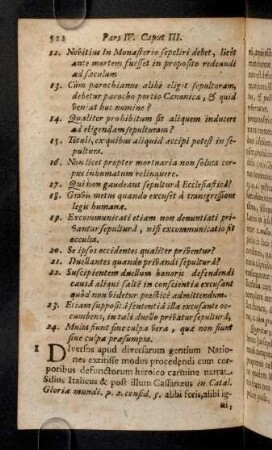 522 Pars IV. Caput III.
12. Novitius in Monasterio sepeliri debet, licet
ante mortem fuisset in proposito redeundi
ad sæculum
13. Cùm parochianus alibi eligit sepulturam,
debetur parocho portio Canonica, & quid
veniat hoc nomine?
14. Qualiter prohibitum sit aliquem inducere
ad eligendam sepulturam?
15. Tituli, ex quibus aliquid accipi potest in se-
pultura.
16. Non licet propter mortuaria non soluta cor-
pus inhumatum relinquere.
17. Qui non gaudeant sepulturâ Ecclesiasticâ?
18. Gravis metus quando excuset à transgressione
legis humanæ.
19. Excommunicati etiam non denuntiati pri-
vantur sepulturâ, nisi excommunicatio sit
occulta.
20. Se ipsos occidentes qualiter priventur?
21. Duellantes quando privandi sepulturâ?
22. Suscipientem duellum honoris defendendi
causâ aliqui saltè in conscientia excusant
quòd non videtur practicè admittendum.
23. Etiam supposita sententiâ illa excusante oc-
cumbens, in tali duello privatur sepulturâ,
24. Multa fiunt sine culpa vera, quæ non fiunt
sine culpa præsumpta.
1 Diversos apud diversarum gentium Natio-
nes extitisse modos procedendi cum cor-
poribus defunctorum heroico carmine narrat
Silius Italicus & post illum Cassinæus in Catal.
Gloriæ mundi. p. 2. consid. 5. alibi foris, alibi ig-
ni,